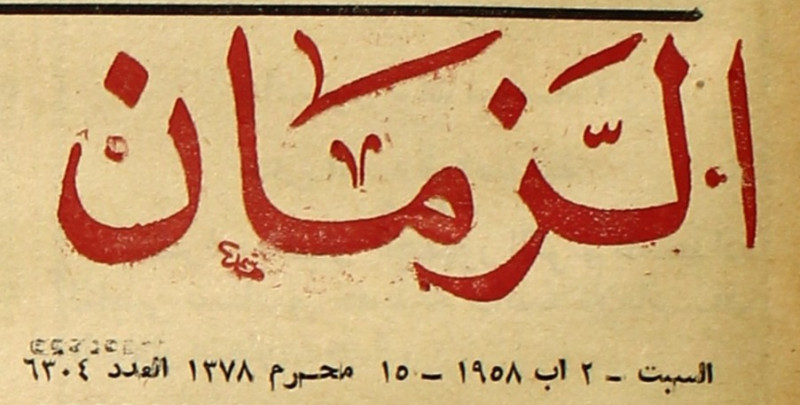 الزّمان
السبت - ٢ اب ١٩٥٨ - ١٥ محرم ١٣٧٨ العدد ٦٣٠٤